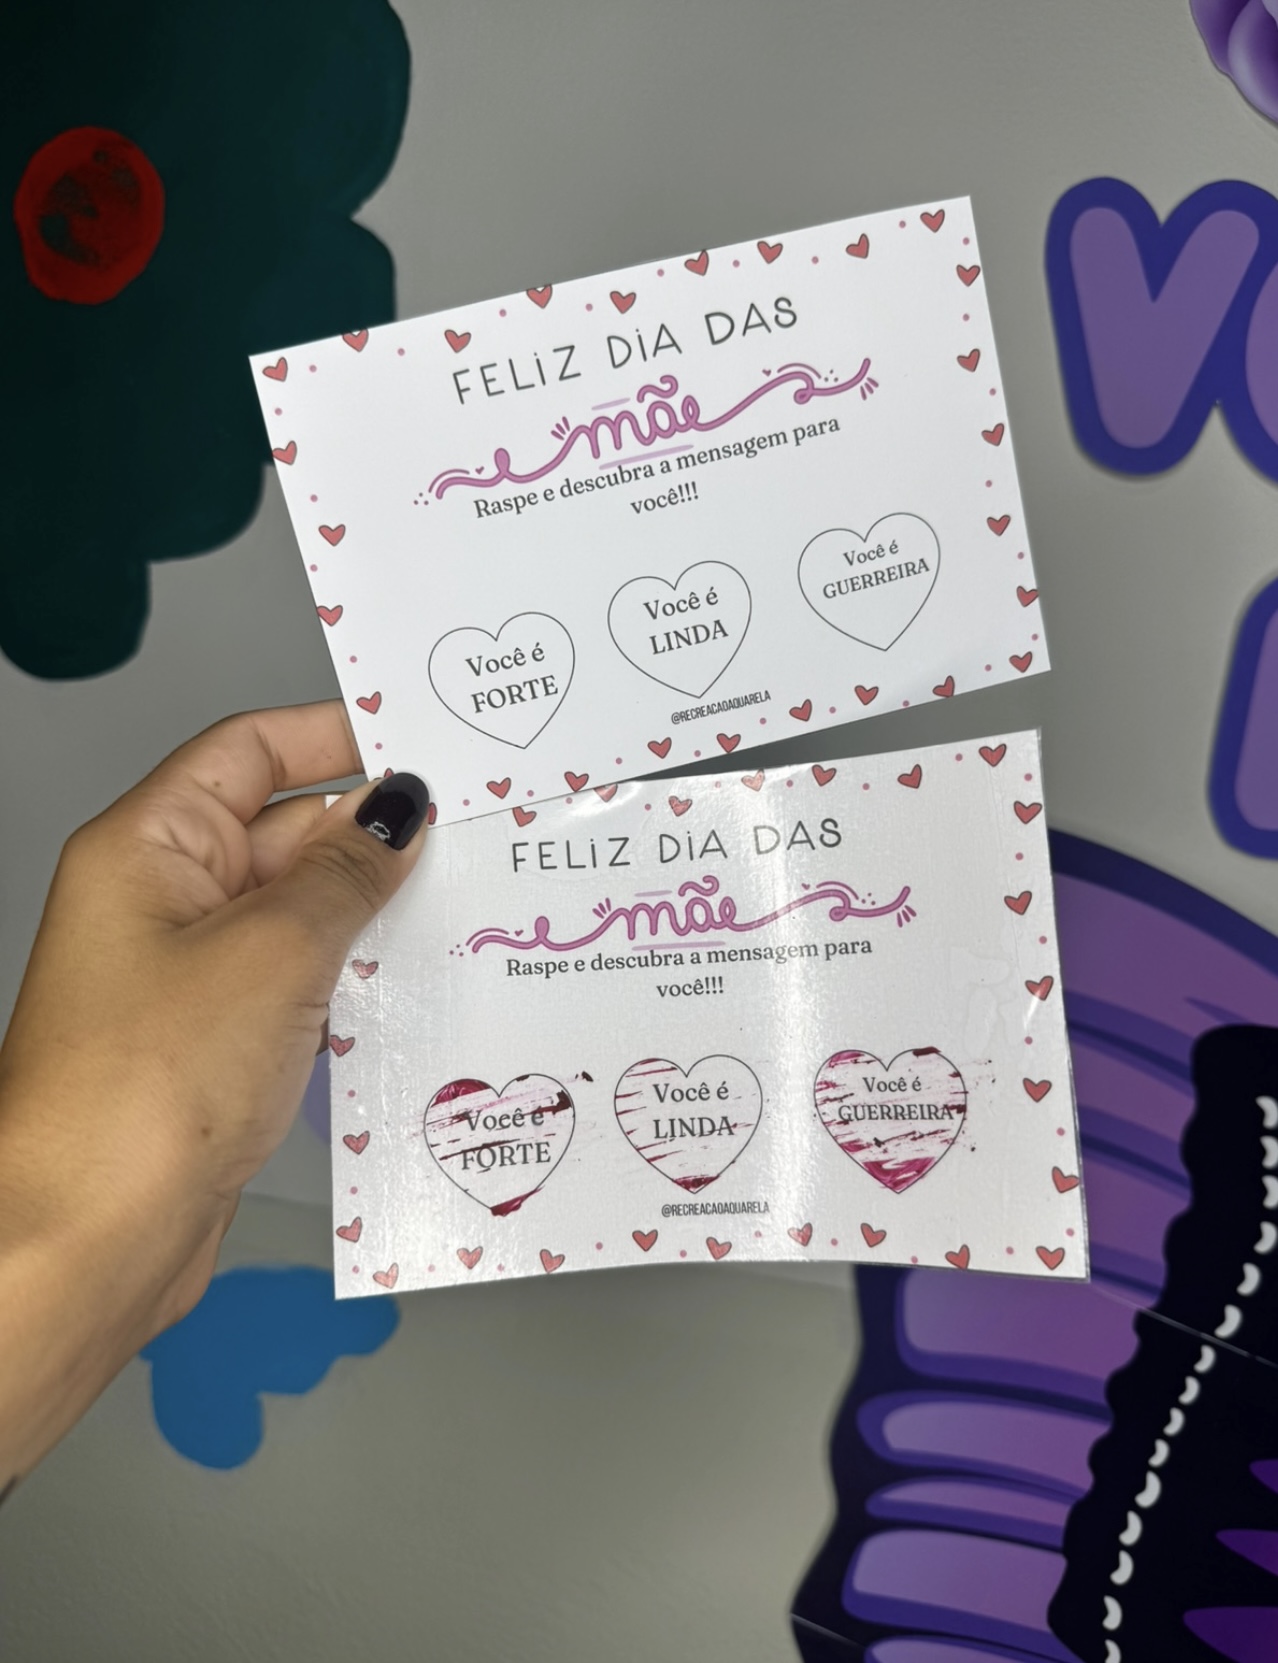 FELIZ DIA DAS
mães
Raspe e descubra a mensagem para
você!!!
Você é
FORTE
Você é
LINDA
Você é
GUERREIRA
@RECREACAOAQUARELA
FELIZ DIA DAS
mães
Raspe e descubra a mensagem para
você!!!
Você é
FORTE
Você é
LINDA
Você é
GUERREIRA
@RECREACAOAQUARELA